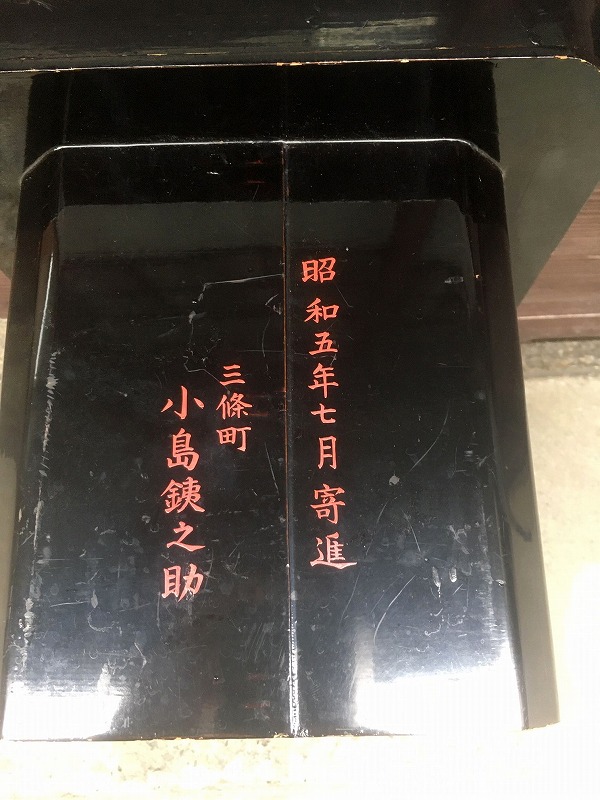 昭和五年七月寄進
三條町
小島銕之助